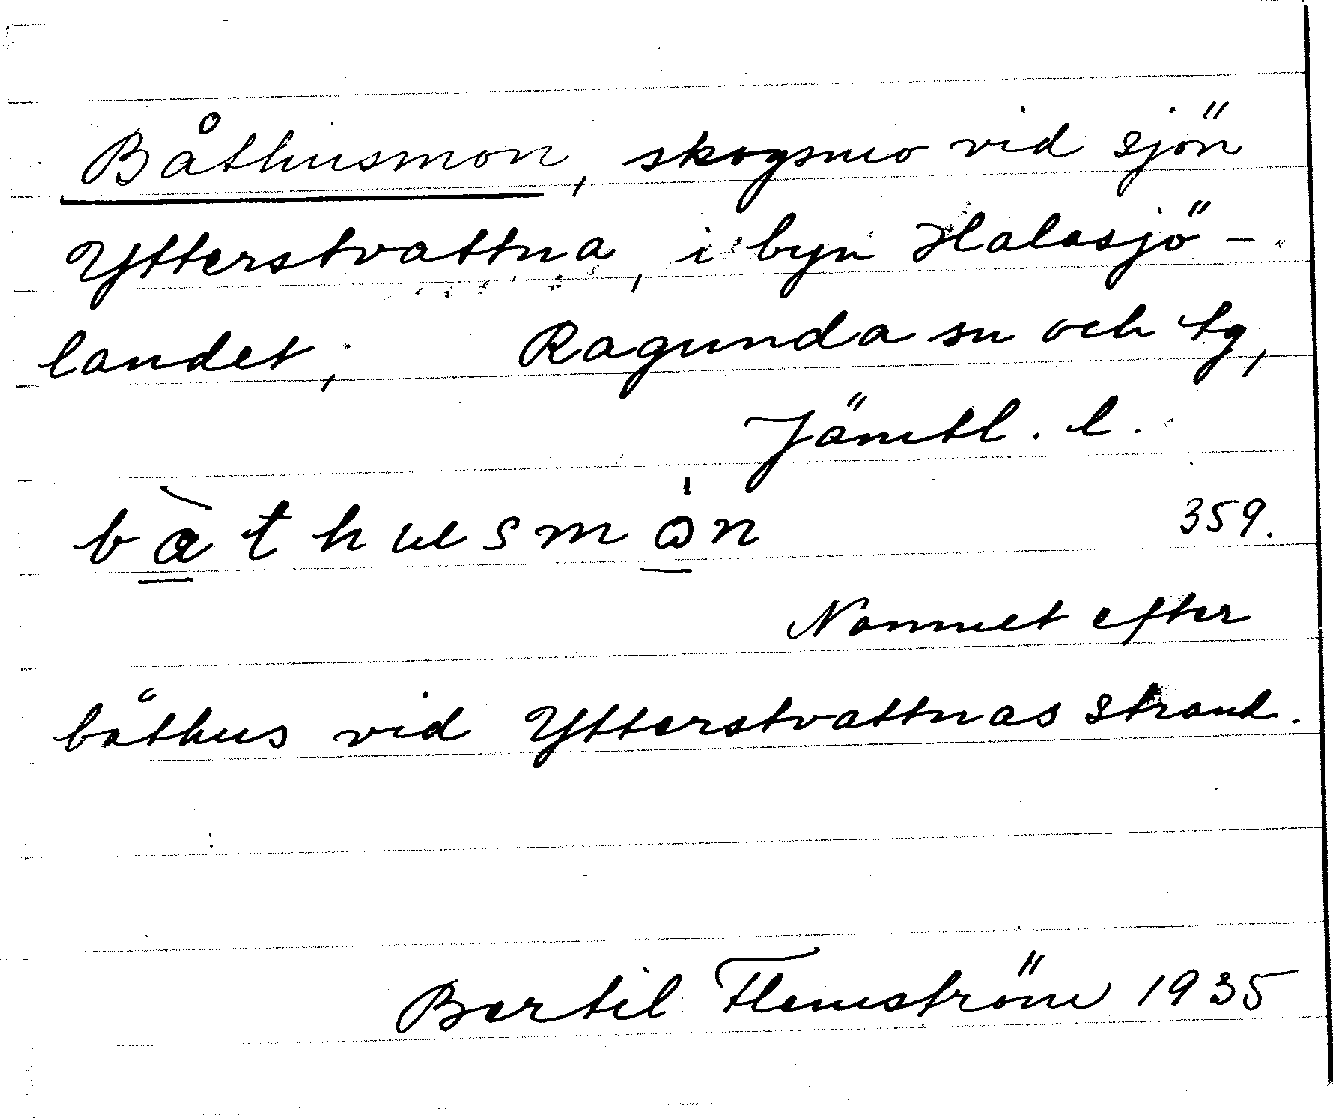 Båthusmon, skogsmo vid sjön
Ytterstvattna, i byn Halasjö-
landet, Ragunda sn och tg,
Jämtl. l.
bàthusmòn 359.
Namnet efter
båthus vid Ytterstvattnas strand.
Bertil Flemström 1935